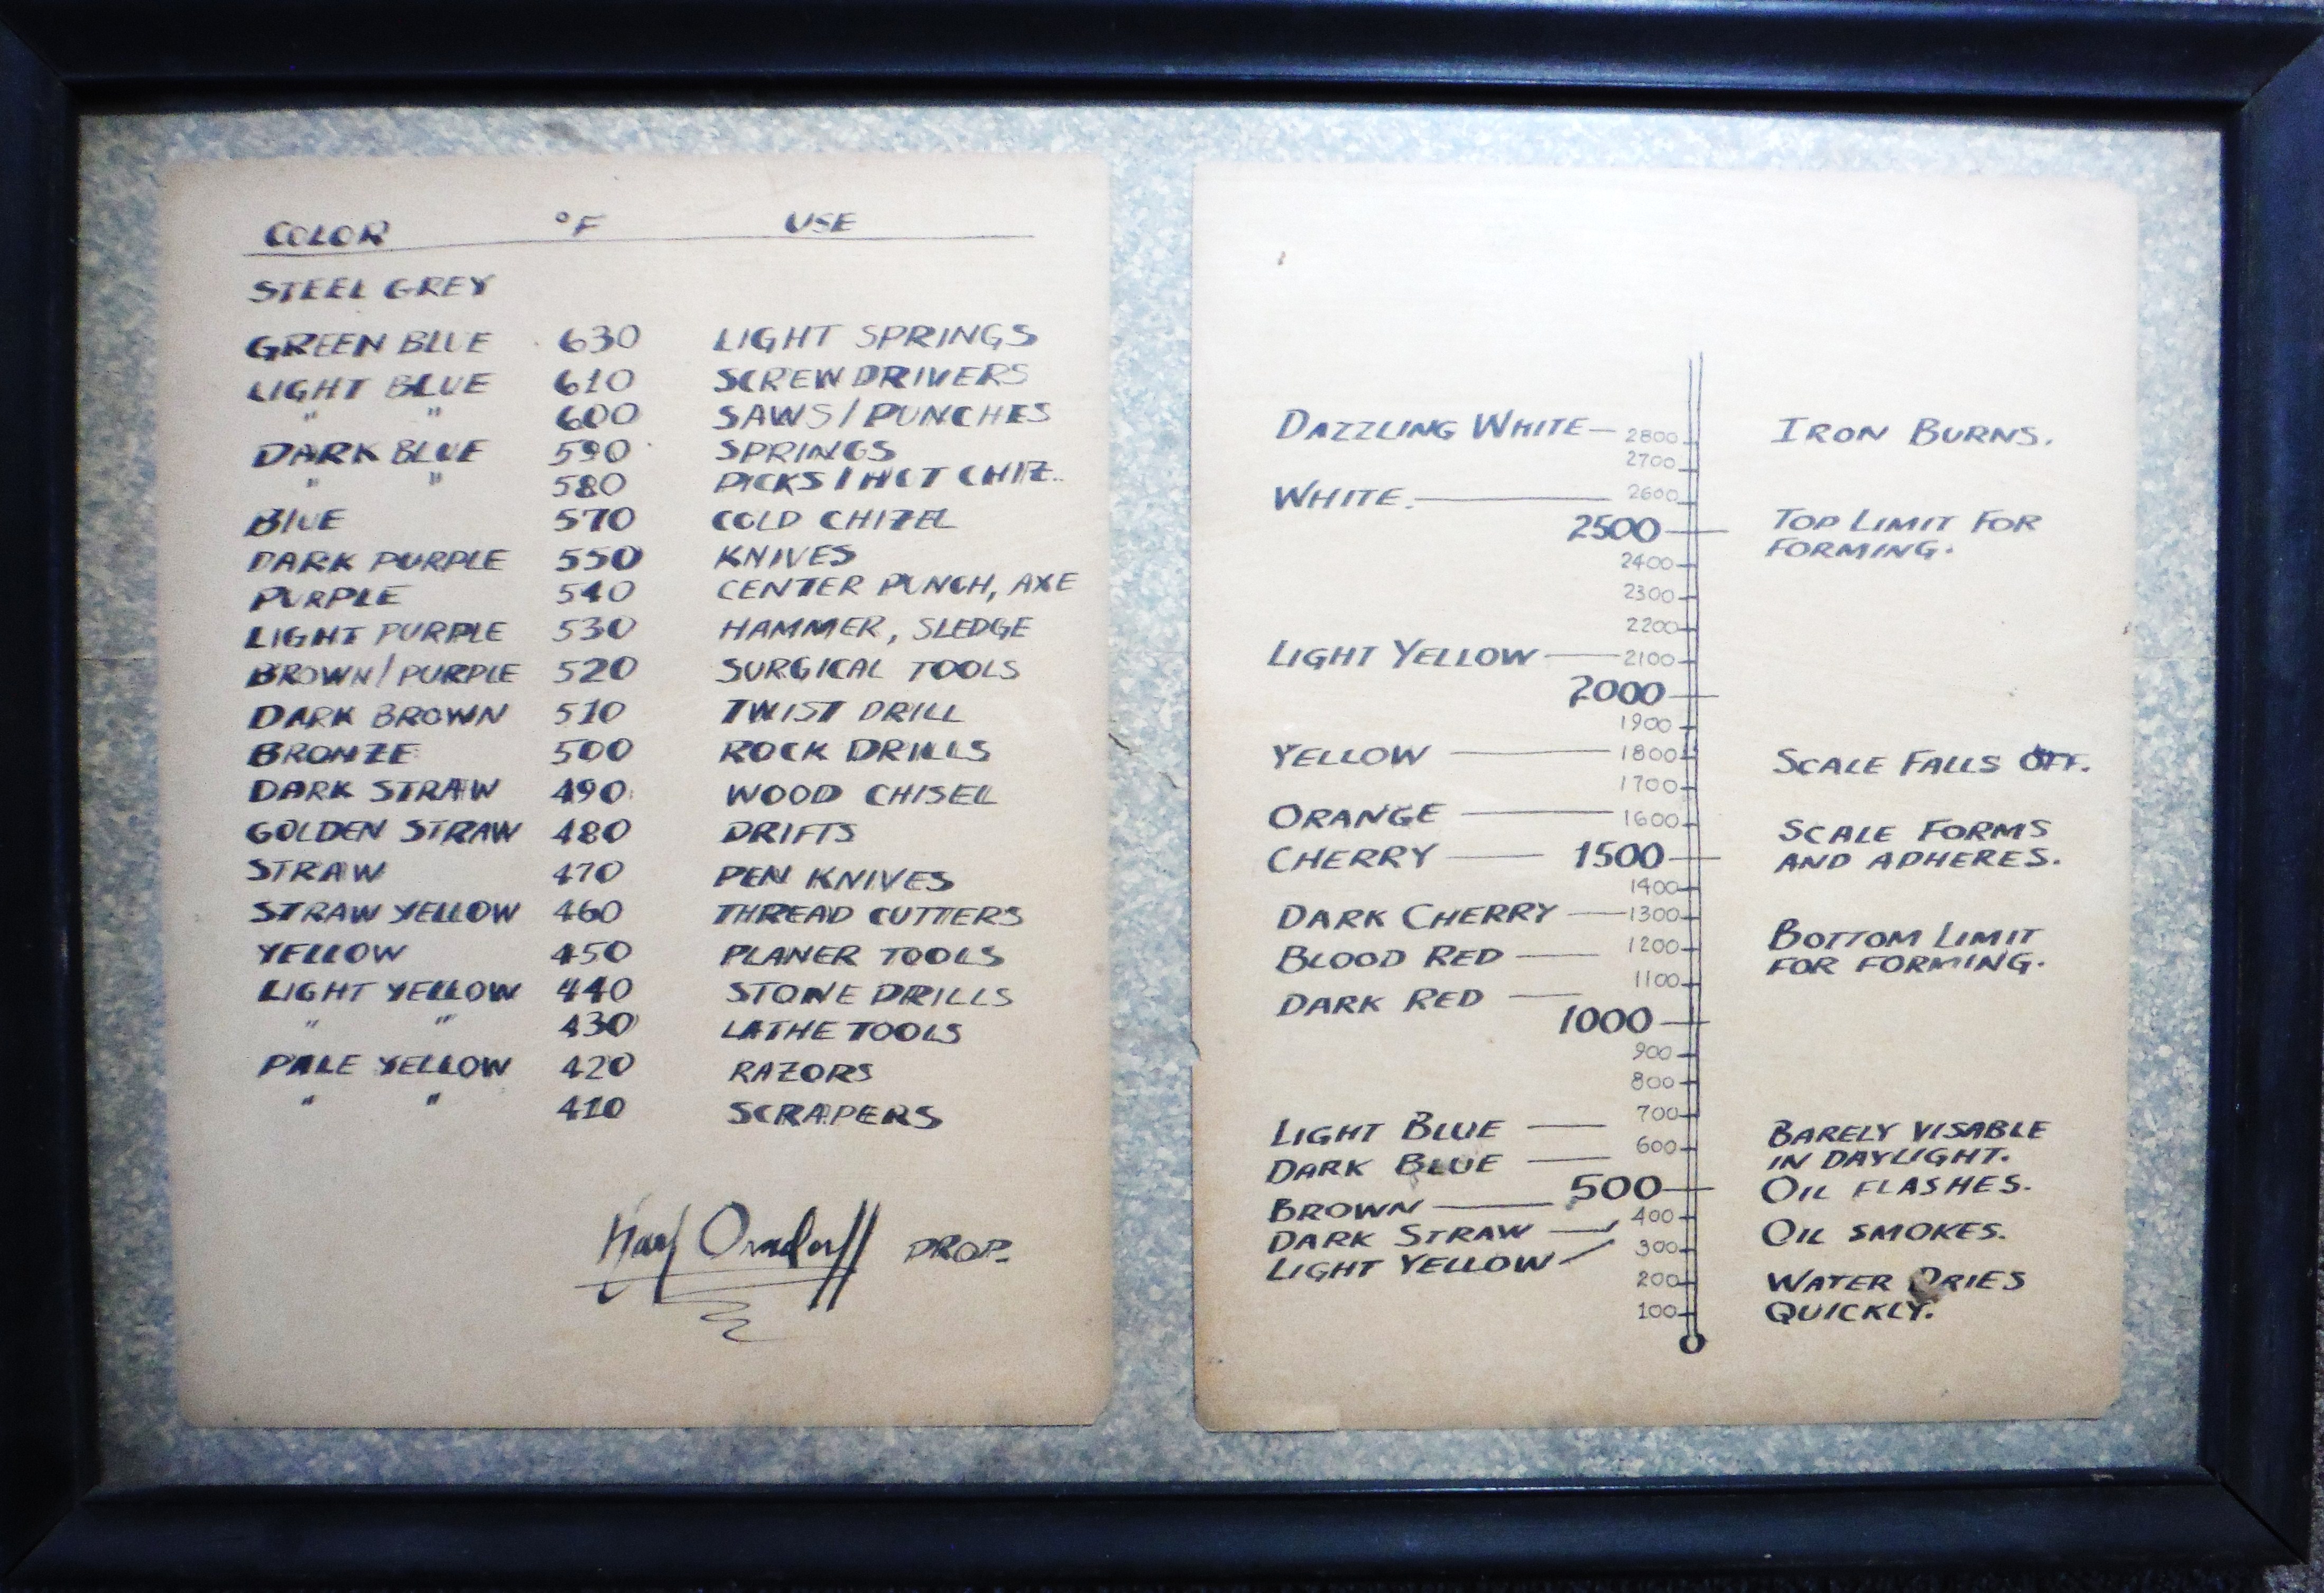 COLOR °F USE
STEEL GREY
GREEN BLUE 630 LIGHT SPRINGS
LIGHT BLUE 610 SCREWDRIVERS
" " 600 SAWS/PUNCHES
DARK BLUE 590 SPRINGS
" " 580 PICKS/HOT CHIZ..
BLUE 570 COLD CHIZEL
DARK PURPLE 550 KNIVES
PURPLE 540 CENTER PUNCH, AXE
LIGHT PURPLE 530 HAMMER, SLEDGE
BROWN/PURPLE 520 SURGICAL TOOLS
DARK BROWN 510 TWIST DRILL
BRONZE 500 ROCK DRILLS
DARK STRAW 490 WOOD CHISEL
GOLDEN STRAW 480 DRIFTS
STRAW 470 PEN KNIVES
STRAW YELLOW 460 THREAD CUTTERS
YELLOW 450 PLANER TOOLS
LIGHT YELLOW 440 STONE DRILLS
" " 430 LATHE TOOLS
PALE YELLOW 420 RAZORS
" " 410 SCRAPERS
Orndorff PROP.
DAZZLING WHITE 2800 IRON BURNS.
2700
WHITE. 2600
2500 TOP LIMIT FOR
FORMING.
2400
2300
2200
LIGHT YELLOW 2100
2000
1900
YELLOW 1800 SCALE FALLS OFF.
1700
ORANGE 1600 SCALE FORMS
CHERRY 1500 AND ADHERES.
1400
DARK CHERRY 1300
BLOOD RED 1200 BOTTOM LIMIT
FOR FORMING.
1100
DARK RED
1000
900
800
700
LIGHT BLUE BARELY VISABLE
600 IN DAYLIGHT.
DARK BLUE
500 OIL FLASHES.
BROWN 400
DARK STRAW OIL SMOKES.
300
LIGHT YELLOW
200 WATER DRIES
100 QUICKLY.